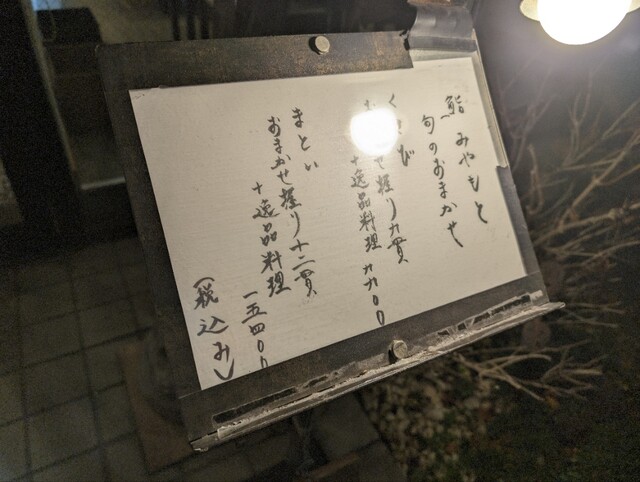 鮨 みやもと
旬のおまかせ
くさび
おまかせ握り九貫
+逸品料理 九九〇〇
まとい
おまかせ握り十二貫
+逸品料理
一五四〇〇
(税込み)